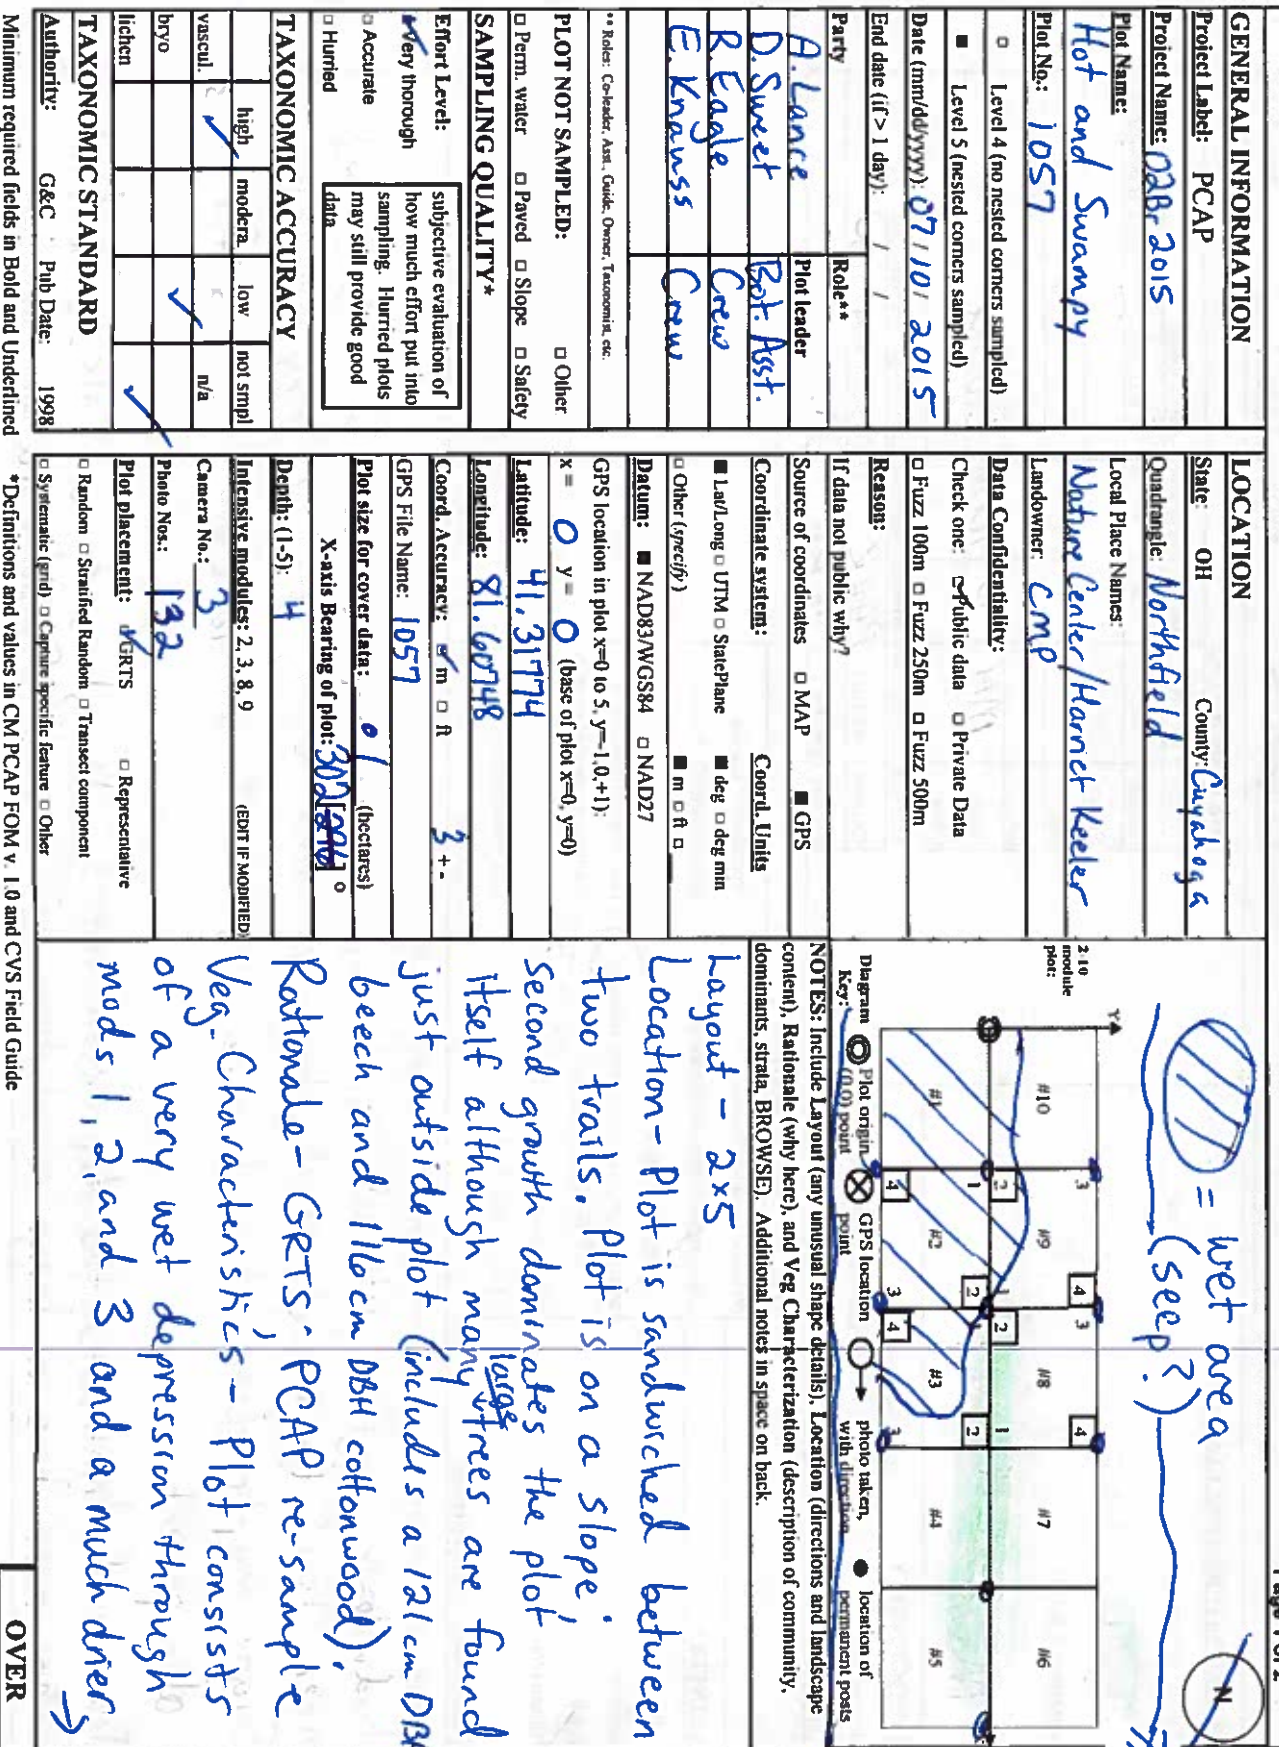 Page 1 of 2
GENERAL INFORMATION
Project Label: PCAP
Project Name: 02Br 2015
Plot Name:
Hot and Swampy
Plot No.: 1057
□ Level 4 (no nested corners sampled)
■ Level 5 (nested corners sampled)
Date (mm/dd/yyyy): 07/10/2015
End date (if > 1 day): / /
Party Role**
A. Lance Plot leader
D. Sweet Bot. Asst.
R. Eagle Crew
E. Knauss Crew
** Roles: Co-leader, Asst, Guide, Owner, Taxonomist, etc.
PLOT NOT SAMPLED: □ Other
□ Perm. water □ Paved □ Slope □ Safety
SAMPLING QUALITY*
Effort Level:
✓ Very thorough
□ Accurate
□ Hurried
subjective evaluation of
how much effort put into
sampling. Hurried plots
may still provide good
data
TAXONOMIC ACCURACY
high modera low not smpl
vascul. ✓ n/a
bryo ✓
lichen ✓
TAXONOMIC STANDARD
Authority: G&C Pub Date: 1998
Minimum required fields in Bold and Underlined
LOCATION
State: OH County: Cuyahoga
Quadrangle: Northfield
Local Place Names:
Nature Center/Harriet Keeler
Landowner: CMP
Data Confidentiality:
Check one: ✓ Public data □ Private Data
□ Fuzz 100m □ Fuzz 250m □ Fuzz 500m
Reason:
If data not public why?
Source of coordinates □ MAP ■ GPS
Coordinate system: Coord. Units
■ Lat/Long □ UTM □ StatePlane ■ deg □ deg min
□ Other (specify) ■ m □ ft □
Datum: ■ NAD83/WGS84 □ NAD27
GPS location in plot x=0 to 5, y=-1,0,+1):
x = 0 y = 0 (base of plot x=0, y=0)
Latitude: 41.31774
Longitude: 81.60748
Coord. Accuracy: ✓ m □ ft 3 + -
GPS File Name: 1057
Plot size for cover data: .1 (hectares)
X-axis Bearing of plot: 302 °
Depth: (1-5): 4
Intensive modules: 2, 3, 8, 9 (EDIT IF MODIFIED)
Camera No.: 3
Photo Nos.: 132
Plot placement: ✓ GRTS □ Representative
□ Random □ Stratified Random □ Transect component
□ Systematic (grid) □ Capture specific feature □ Other
*Definitions and values in CM PCAP FOM v. 1.0 and CVS Field Guide
= wet area
(seep?)
N
2-10
module
plot:
Y
#10 #9 #8 #7 #6
#1 #2 #3 #4 #5
Diagram Key: Plot origin (0,0) point GPS location point photo taken, with direction location of permanent posts
NOTES: Include Layout (any unusual shape details), Location (directions and landscape
content), Rationale (why here), and Veg Characterization (description of community,
dominants, strata, BROWSE). Additional notes in space on back.
Layout - 2x5
Location - Plot is sandwiched between
two trails. Plot is on a slope.
second growth dominates the plot
itself although many large trees are found
just outside plot (includes a 121 cm DBH
beech and 116 cm DBH cottonwood).
Rationale - GRTS, PCAP re-sample
Veg. Characteristics - Plot consists
of a very wet depression through
mods 1, 2, and 3 and a much drier →
OVER